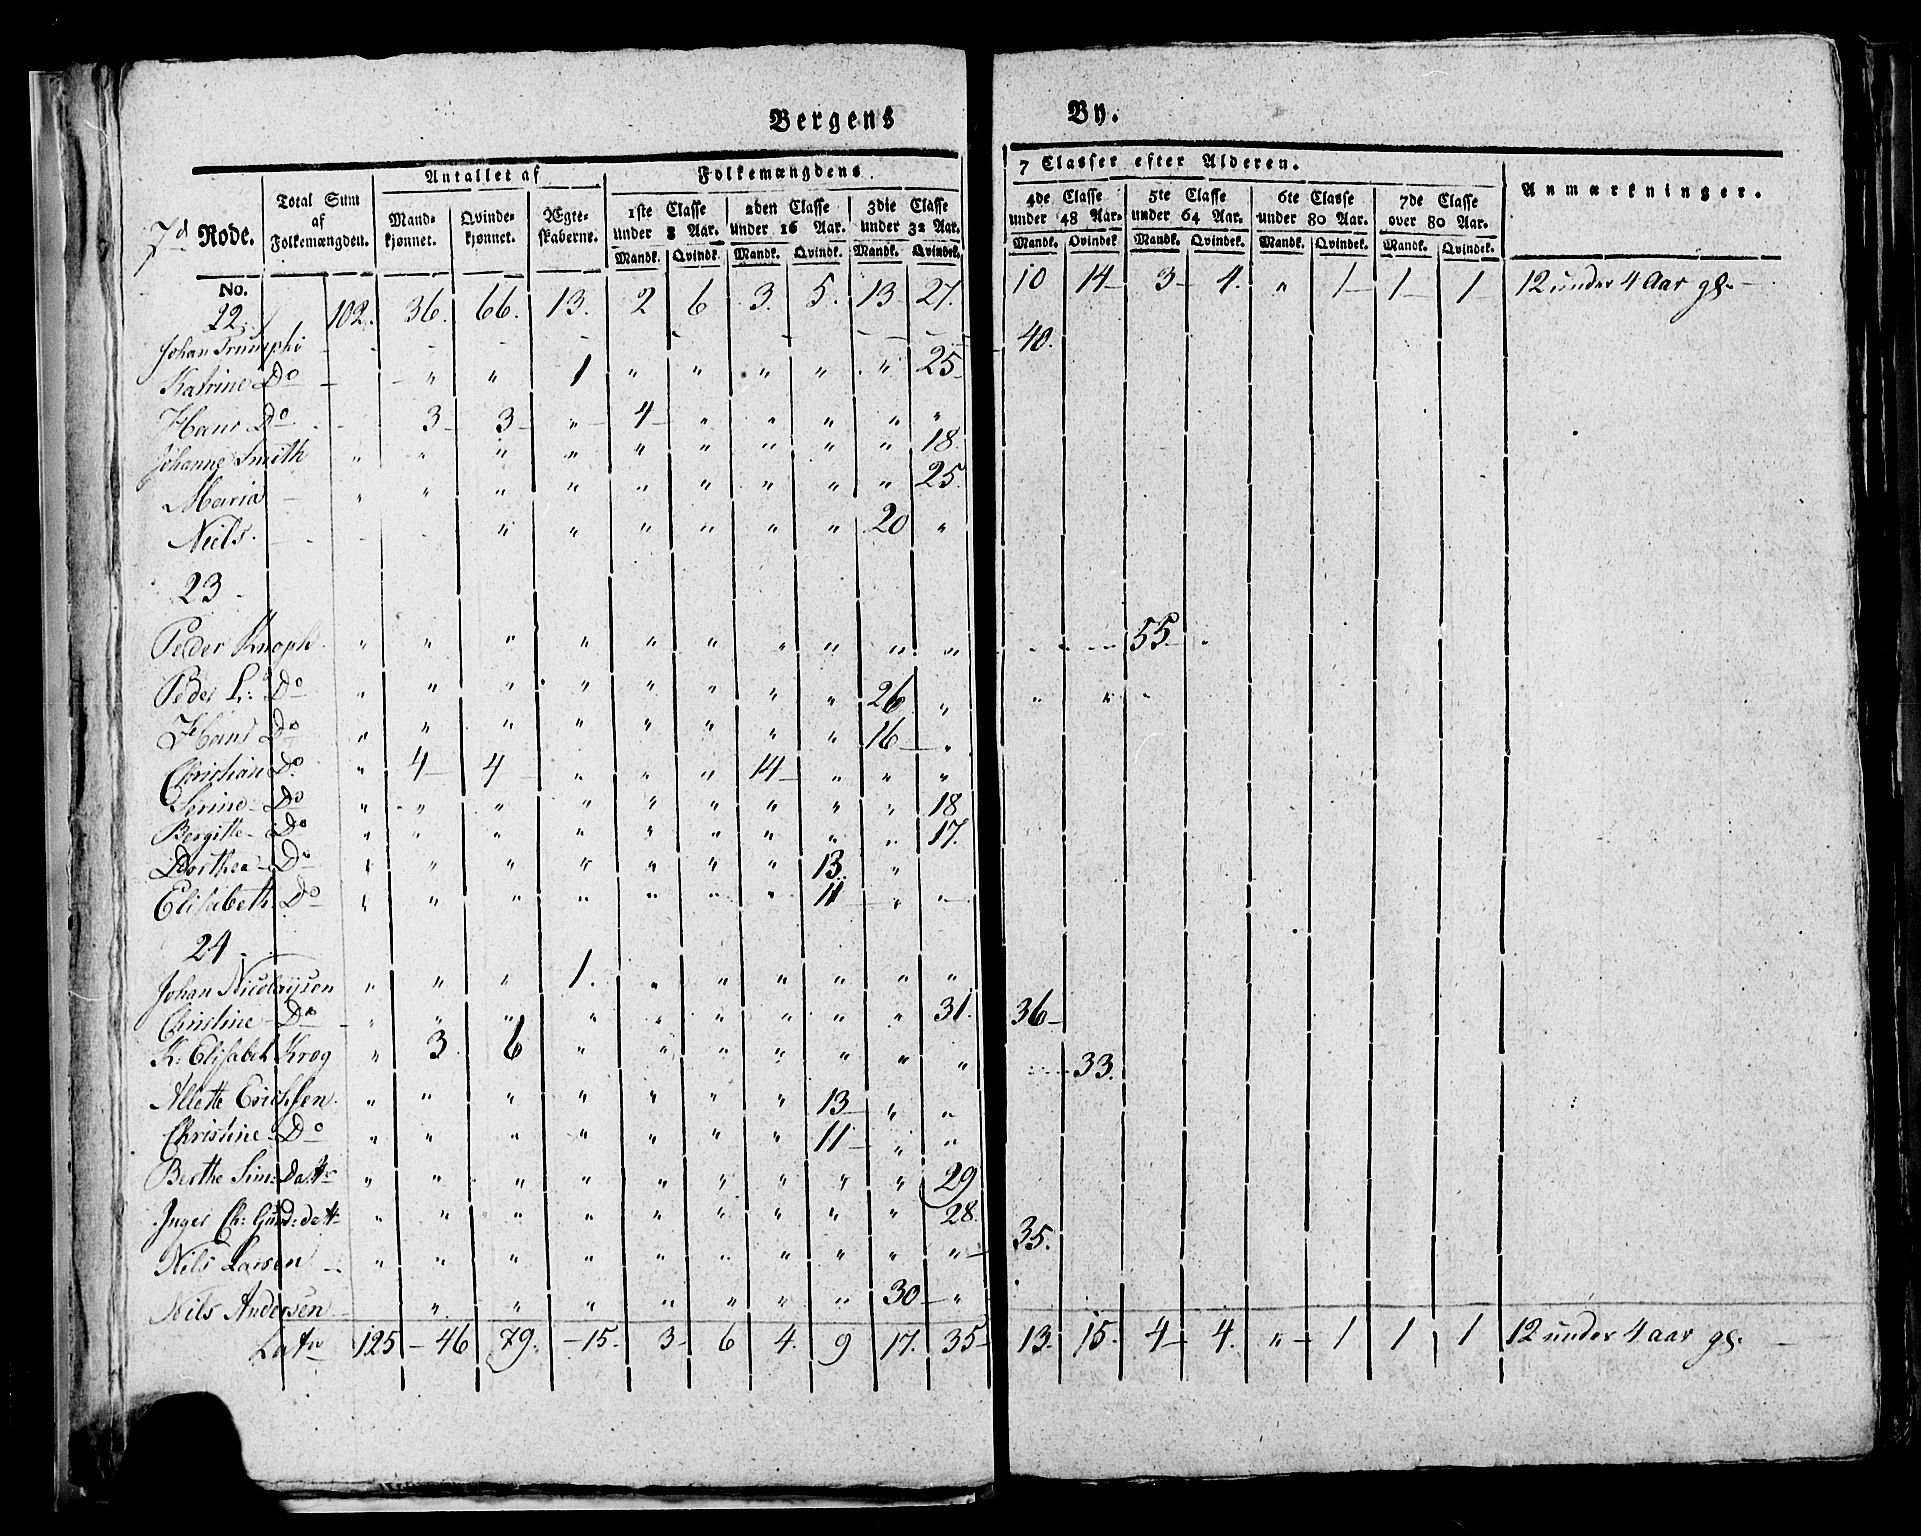 Bergens By.
7d Rode.
Total Sum af Folkemængden.
Antallet af
Mandkjønnet. Qvindekjønnet. Ægteskaberne.
Folkemængdens 7 Classer efter Alderen.
1ste Classe under 8 Aar. 2den Classe under 16 Aar. 3die Classe under 32 Aar. 4de Classe under 48 Aar. 5te Classe under 64 Aar. 6te Classe under 80 Aar. 7de Classe over 80 Aar.
Mandk. Qvindk. Mandk. Qvindk. Mandk. Qvindek. Mandk. Qvindek. Mandk. Qvindek. Mandk. Qvindek. Mandk. Qvindek.
Anmærkninger.
No.
22. 102. 36. 66. 13. 2 6 3. 5. 13 27. 10 14 3 4. " 1 1 1 12 under 4 Aar gl.
Johan Trumphi 40.
Katrine Do " " 1 " " " " " 25
Hans Do 3 3 " 4 " " " " "
Johanne Smith " " " " " " " " " 18.
Maria " " " " " " " " " 25.
Niels. " " " " " " 20 "
23
Peder Knoph. " " " " " " " " " " 55
Peder L: Do " " " " " " " " 26 " " "
Hans Do " " " " " " " " 16 "
Christian Do " 4 4 " " " 14 " " "
Serine Do " " " " " " " " " 18
Bergitte Do " " " " " " " " " 17.
Dorthea Do " " " " " " " 13. "
Elisabeth Do " " " " " " " 11 " "
24
Johan Nicolayson " " " 1. " " " " " "
Christine Do " " " " " " " " " 31. 36
K: Elisabet Krog " 3 6 " " " " " " " 33.
Allette Erichsen. " " " " " " " 13 " "
Christine Do " " " " " " " 11 " "
Berthe Sim: Dattr " " " " " " " " " 29
Inger Ch: Gud: dattr " " " " " " " " " 28. 35.
Nils Larsen " " " " " " " " " "
Nils Andersen " " " " " " " 30 "
Latr 125 46 79. 15. 3 6 4. 9 17. 35 13. 15. 4 4. " 1 1 1 12 under 4 aar gl.